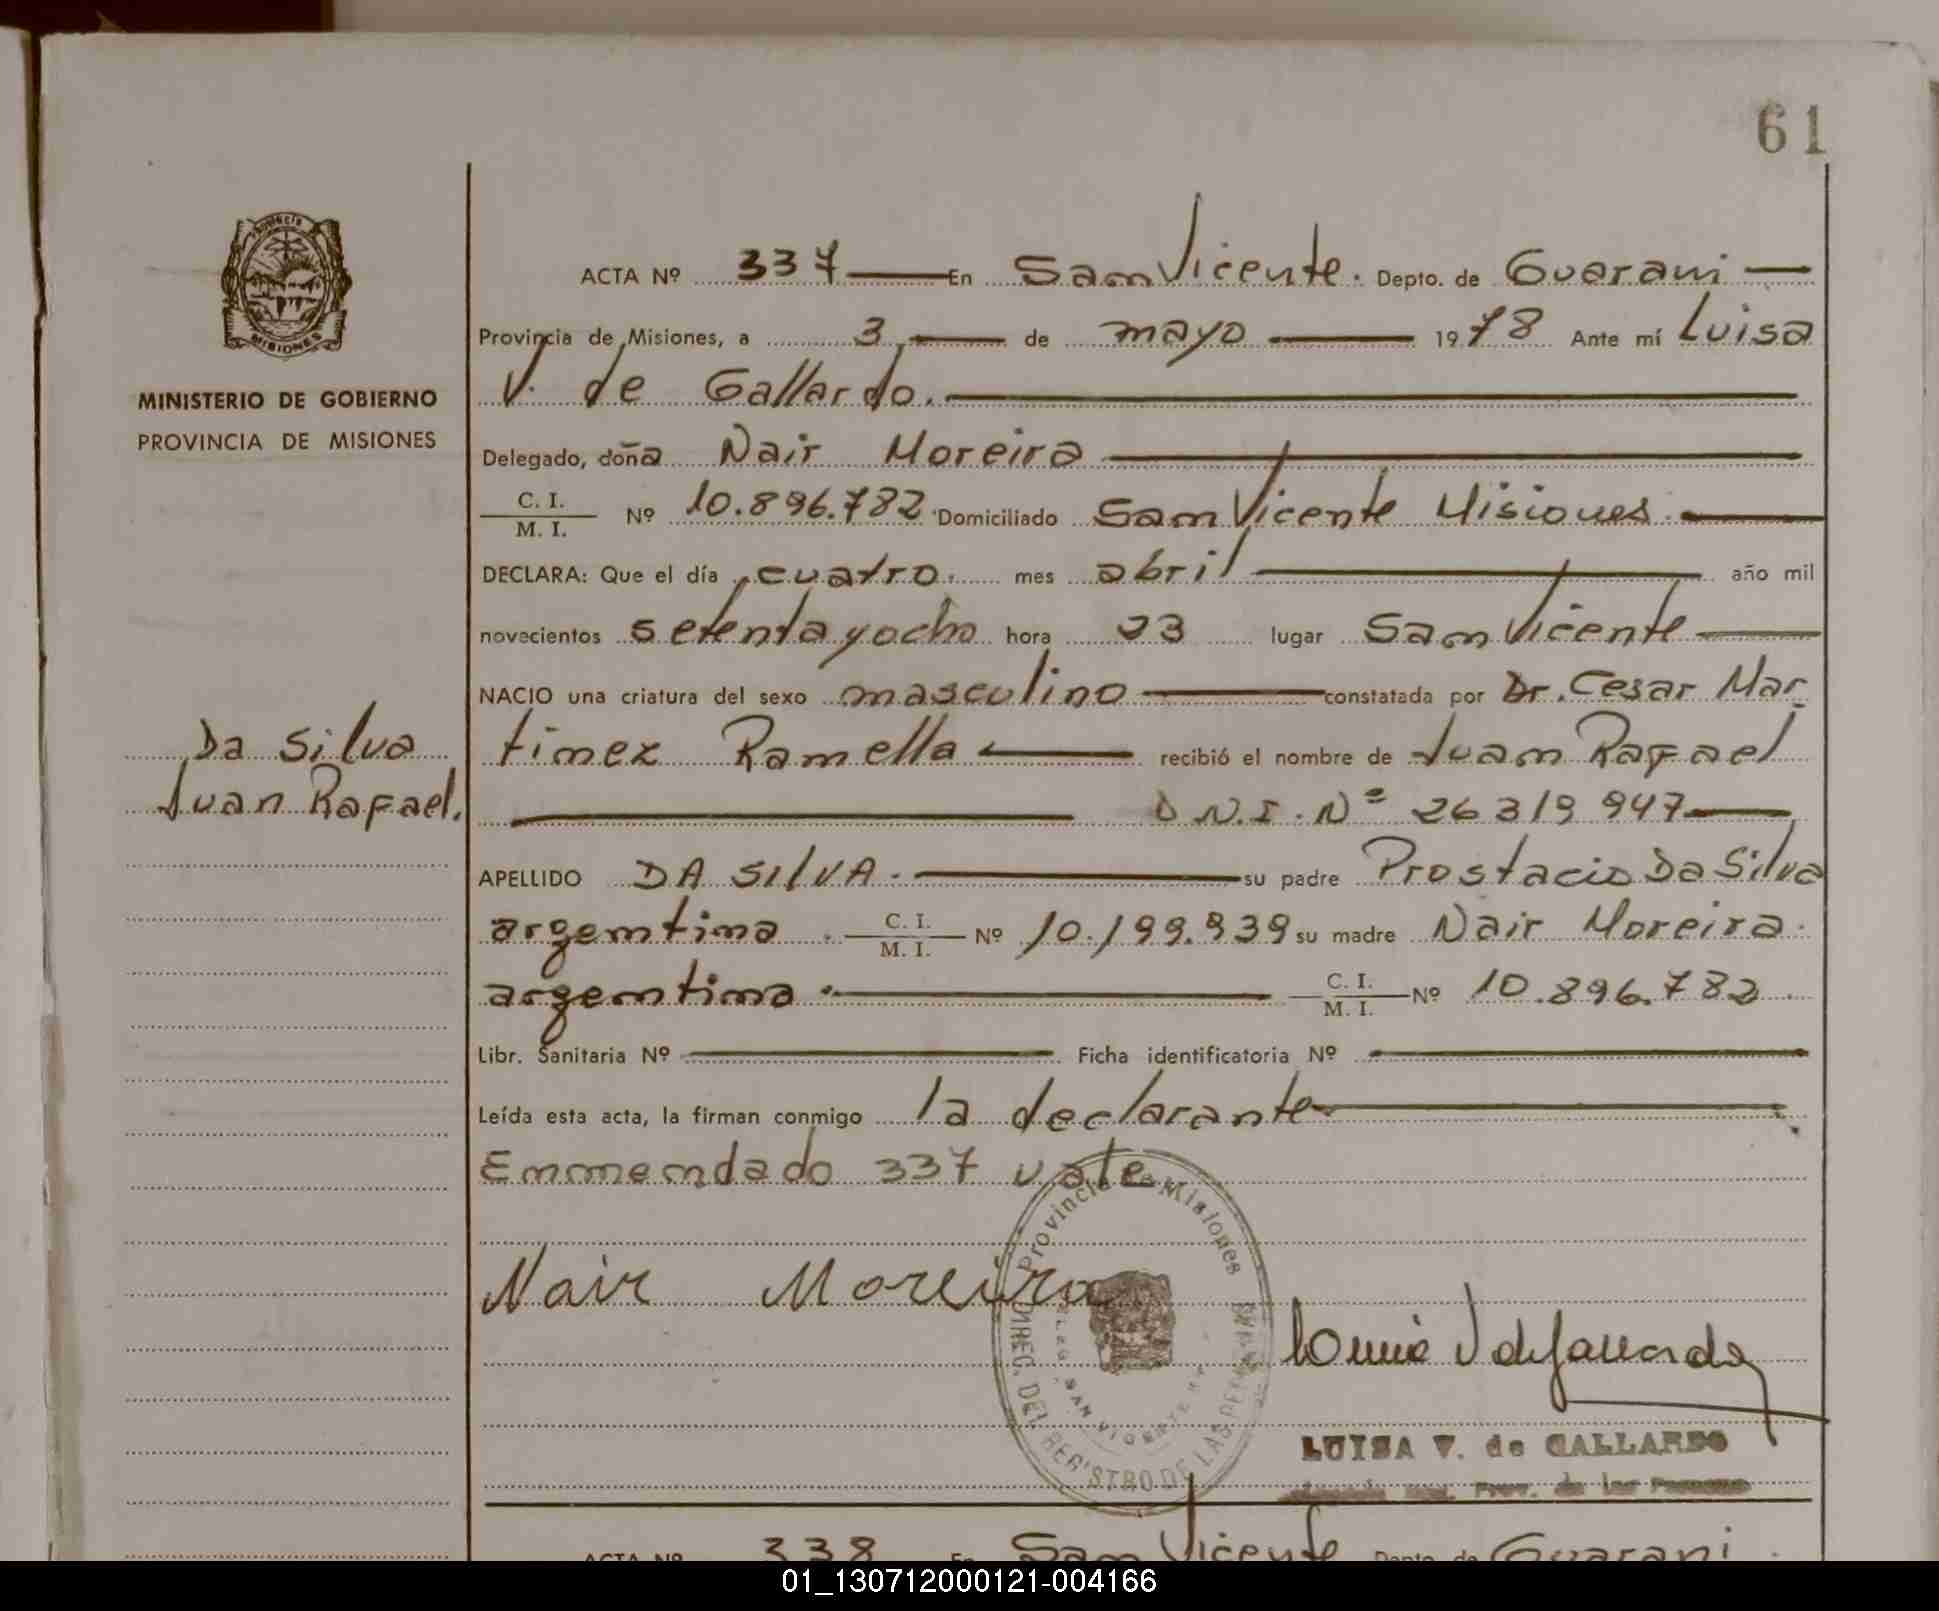 61
PROVINCIA
MISIONES
MINISTERIO DE GOBIERNO
PROVINCIA DE MISIONES
ACTA Nº 337 En San Vicente. Depto. de Guarani
Provincia de Misiones, a 3 de mayo 1978 Ante mí Luisa
V. de Gallardo.
Delegado, doña Nair Moreira
C. I.
M. I. Nº 10.896.782 Domiciliado San Vicente Misiones.
DECLARA: Que el día cuatro mes abril año mil
novecientos setenta y ocho hora 23 lugar San Vicente
NACIO una criatura del sexo masculino constatada por Dr. Cesar Mar
tinez Ramella recibió el nombre de Juan Rafael
Da Silva
Juan Rafael.
D.N.I. Nº 26 319 947
APELLIDO DA SILVA. su padre Prostacio Da Silva
argentina. C. I.
M. I. Nº 10.199.939 su madre Nair Moreira.
argentina. C. I.
M. I. Nº 10.896.782
Libr. Sanitaria Nº Ficha identificatoria Nº
Leída esta acta, la firman conmigo la declarante
Enmendado 337 vale
Nair Moreira
Provincia de Misiones
DIREC. DEL REGISTRO DE LAS PERSONAS
DELEG. SAN VICENTE
LUISA V. de GALLARDO
Prov. de las Personas
ACTA Nº 338 En San Vicente Depto. de Guarani.
01_130712000121-004166